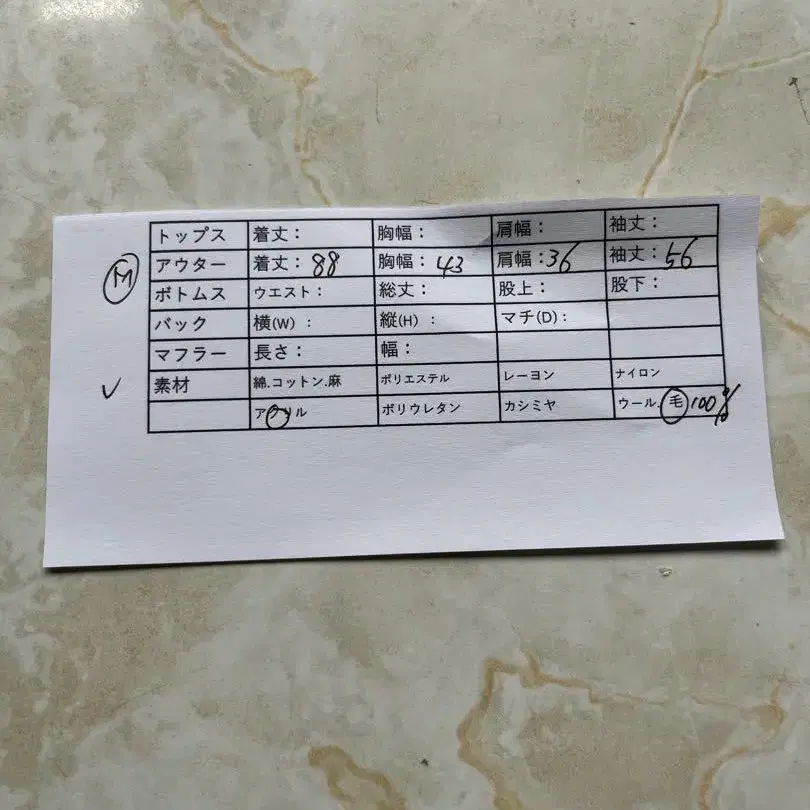 トップス 着丈： 胸幅： 肩幅： 袖丈：
M アウター 着丈：88 胸幅：43 肩幅：36 袖丈：56
ボトムス ウエスト： 総丈： 股上： 股下：
バック 横(W)： 縦(H)： マチ(D)：
マフラー 長さ： 幅：
✓ 素材 綿.コットン.麻 ポリエステル レーヨン ナイロン
アクリル ポリウレタン カシミヤ ウール.毛 100%